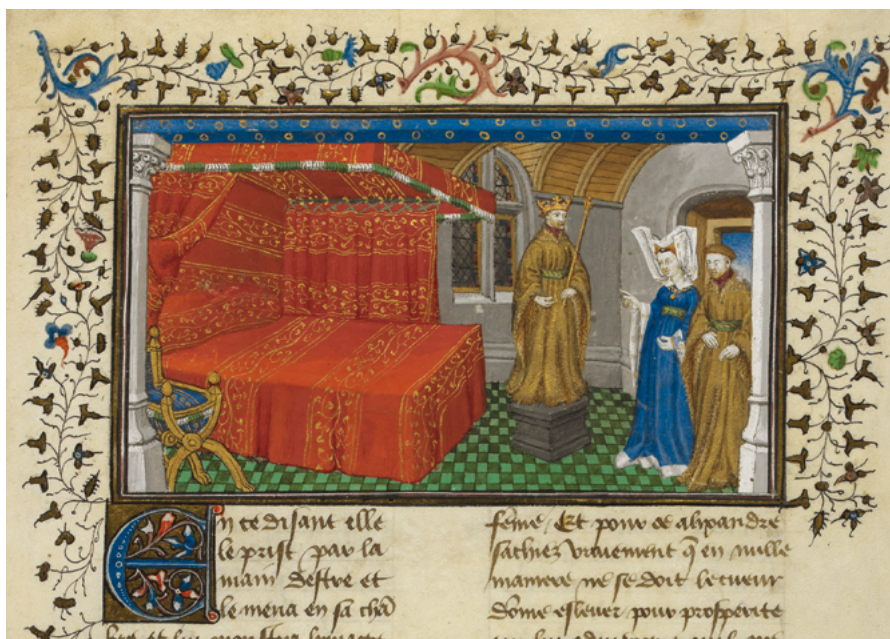 En ce disant elle
le prist par la
main destre et
le mena en sa chā
fēme Et pour ce alixandre
sachiez vraiement q̄ en nulle
maniere ne se doit le cueur
dōme eslever pour prosperite